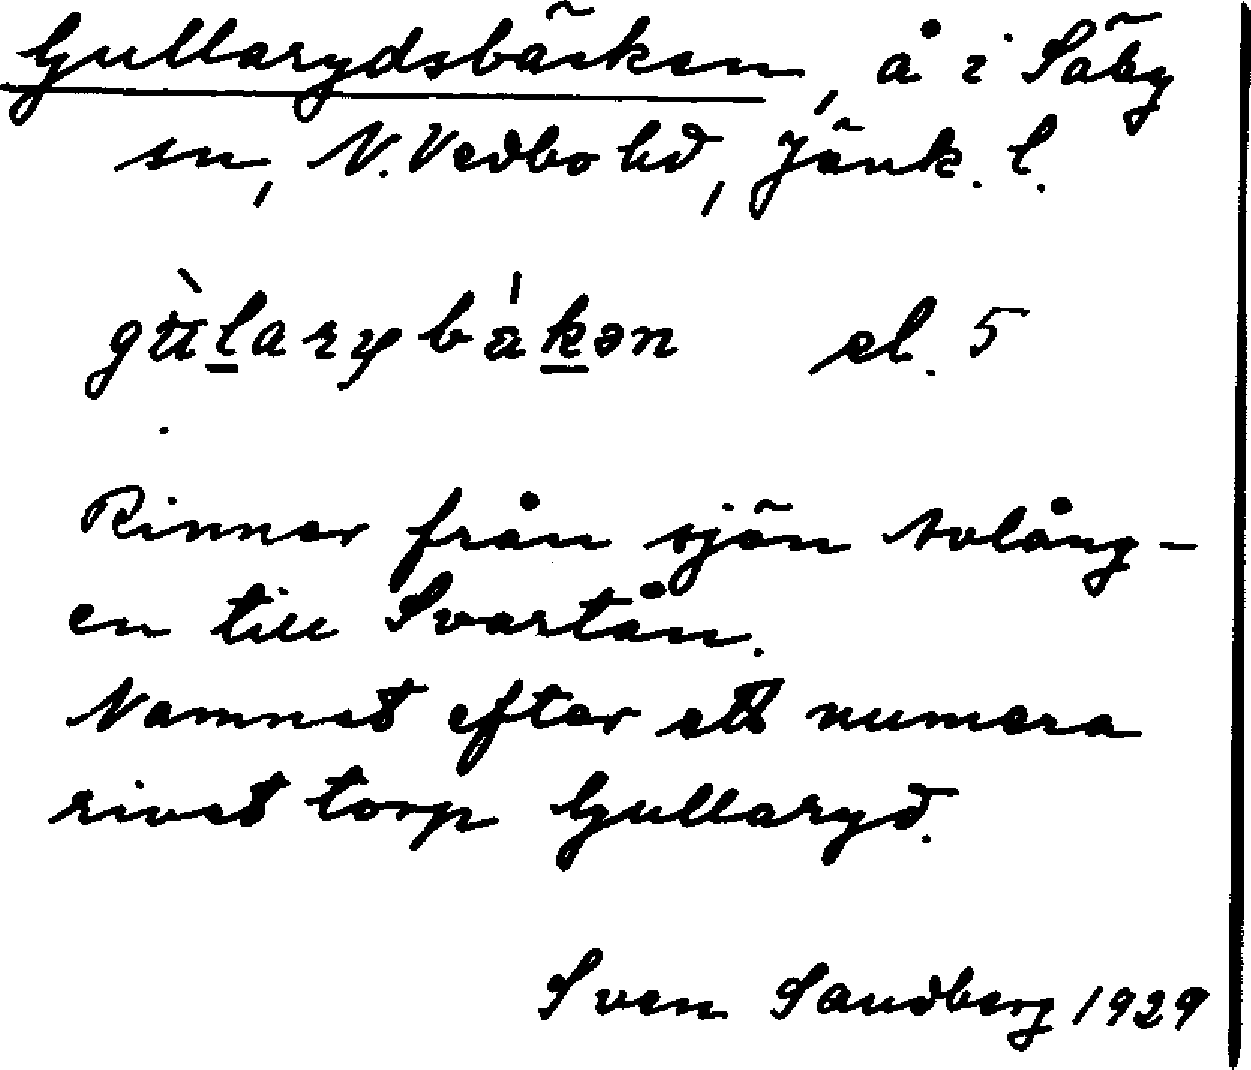 Gullarydsbäcken, å i Säby
sn, N. Vedbo hd, Jönk. l.
gùlarybákən el. 5
Rinner från sjön Solång-
en till Svartån.
Namnet efter ett numera
rivet torp Gullaryd.
Sven Sandberg 1929